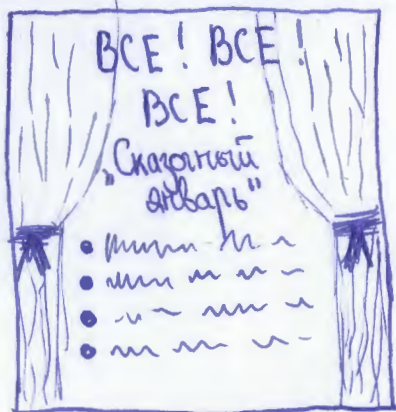 ВСЕ! ВСЕ!
ВСЕ!
„Сказочный
январь"